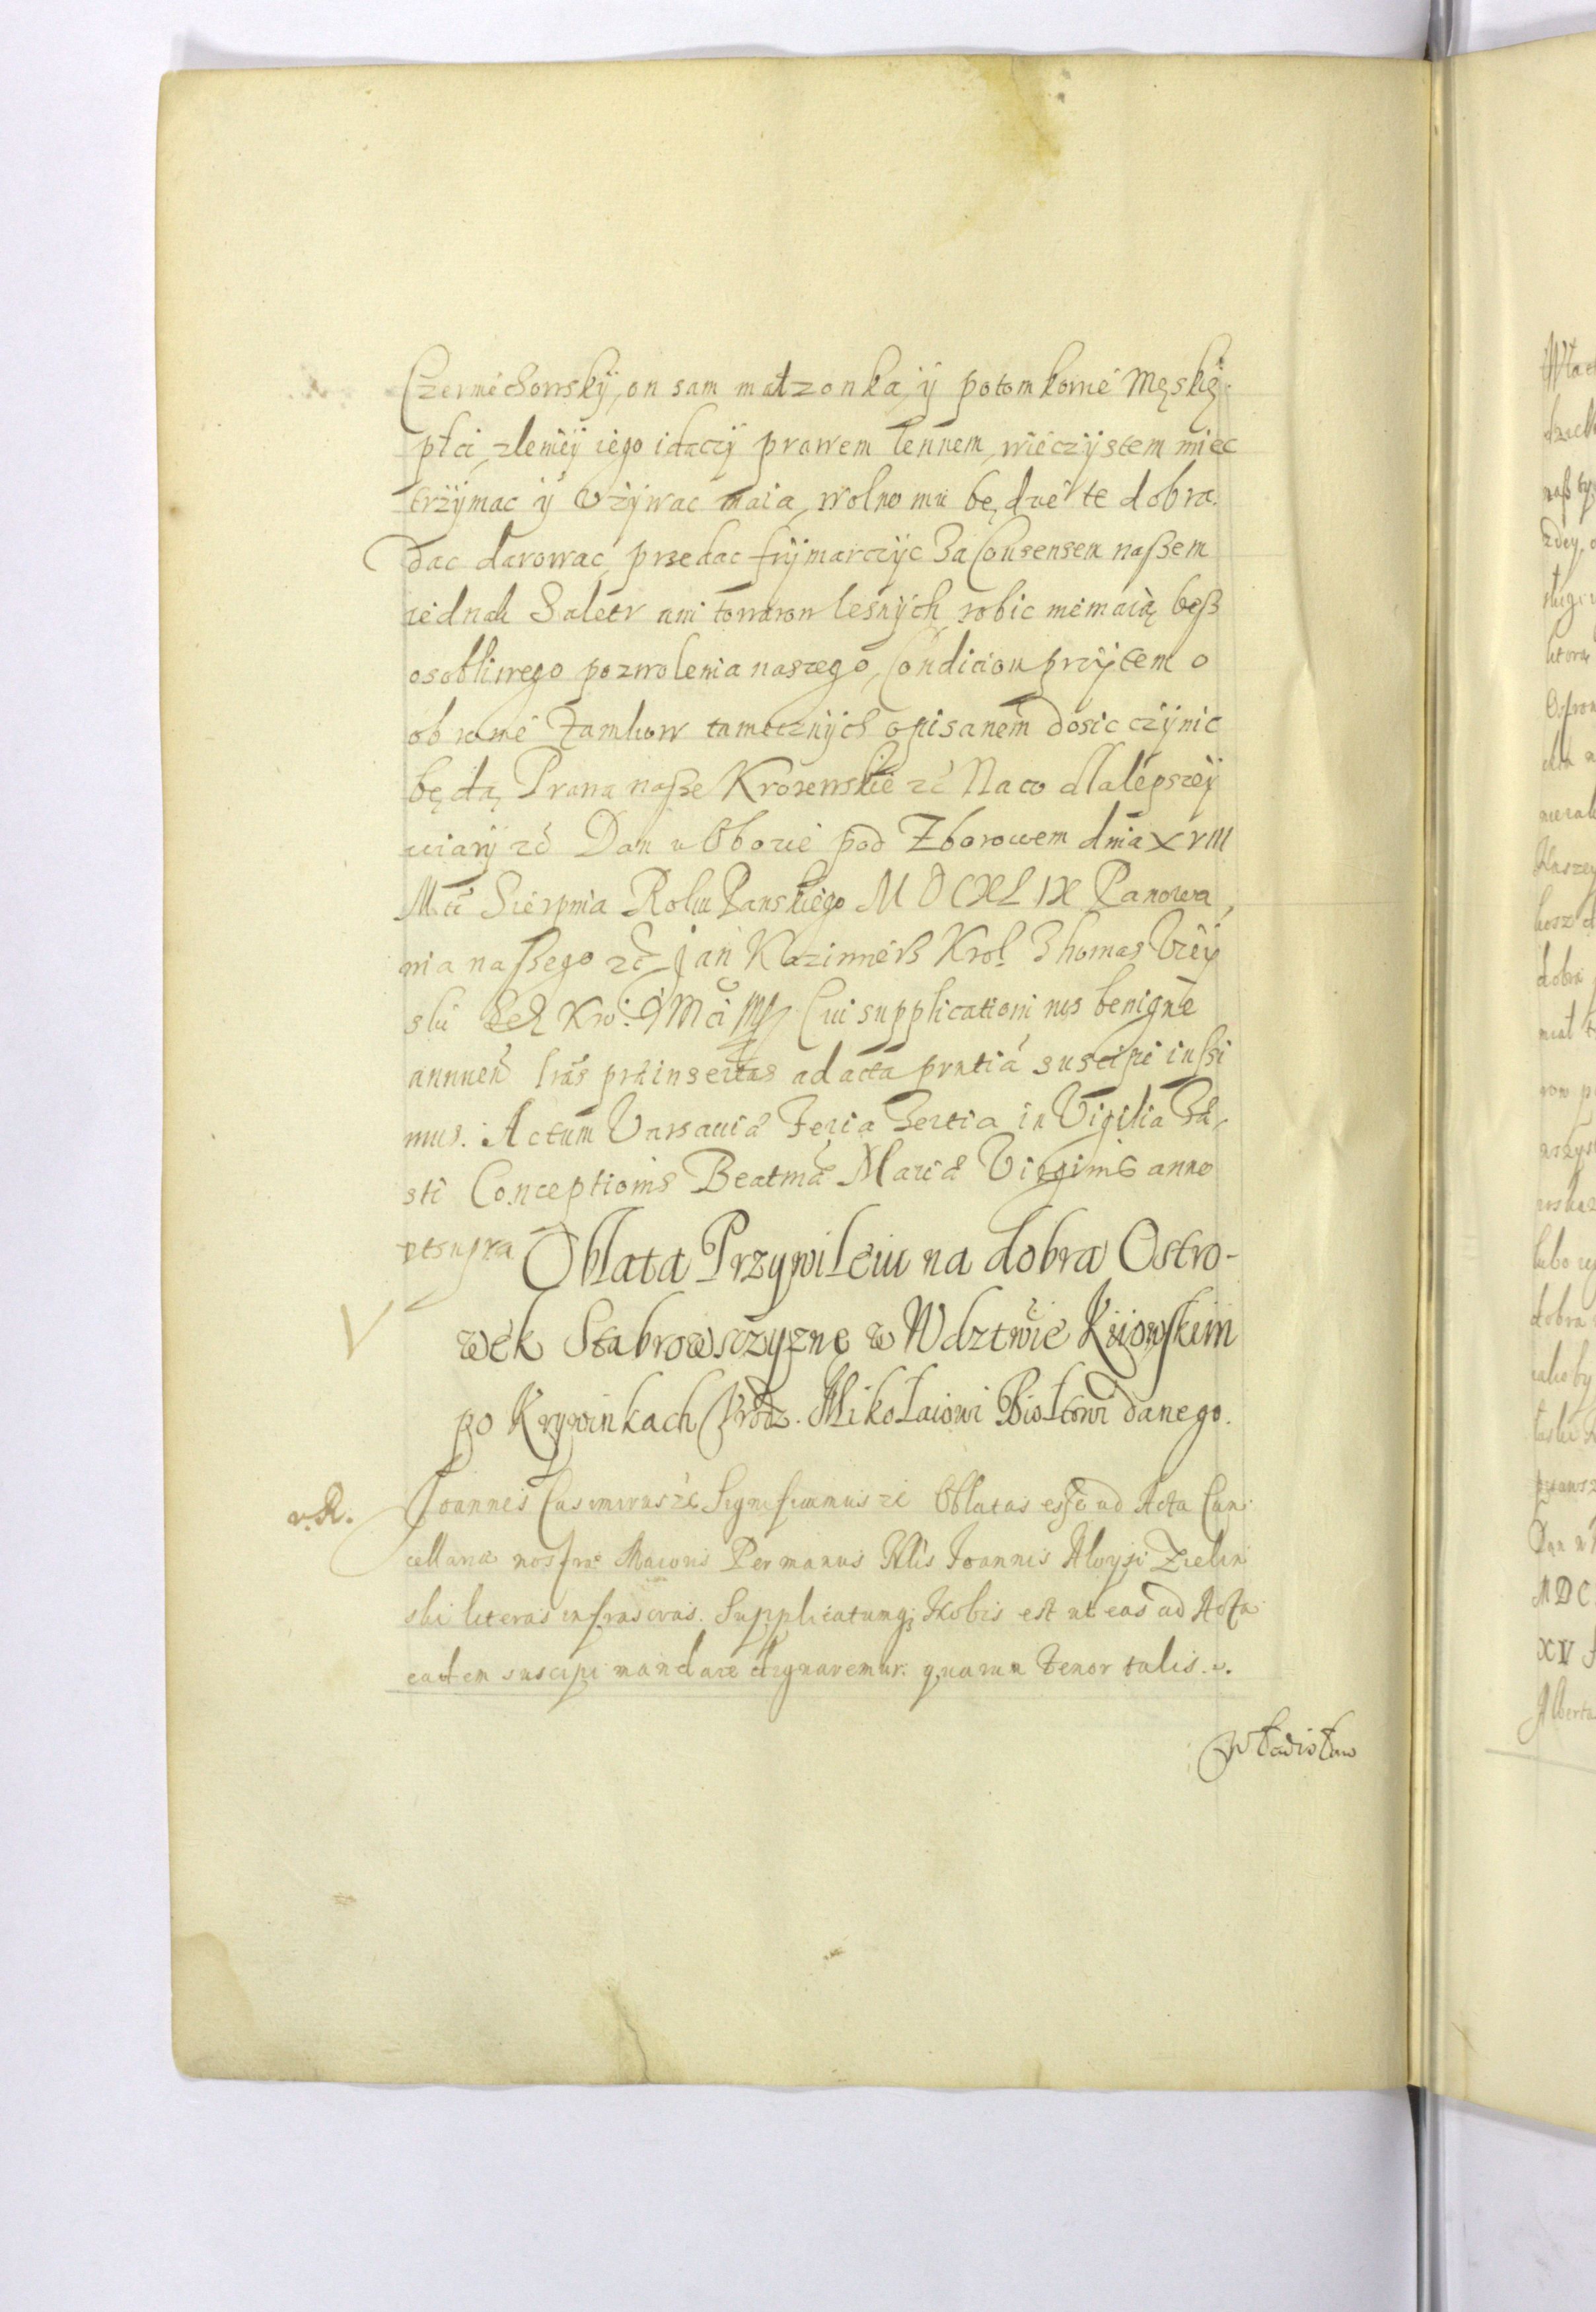 Czerniechowsky, on sam małzonka, y potomkowie Męskiey
płci, zleniey iego idaczÿ prawem lennem, wieczÿstem miec
trzÿmac ÿ vzÿwac maia, wolno mu będzie te dobra
dac darowac, przedac frÿmarczÿc za Consensem naszem
iednak Saletr ani towarow lesnÿch, robic niemaią besz
osobliwego pozwolenia naszego, Condiciom przÿtem o
obronie Zamkow tamecznÿch opisanem dosic czÿnic
będą, Prawa nasze Krolewskie zc Na co dla lepszeÿ
wiarÿ zc Dan w Obozie pod Zborowem dnia XVIII
Mca Sierpnia Roku Panskiego MDCXLIX Panowa,
nia naszego zc Jan Kazimiersz Krol Thomas Vieÿ
ski Sek Kro: J Mci Cui supplicationi nos benigne
annuen lras prainsertas ad acta prntia suscipi iussi
mus. Actum Varsauiæ Feria Tertia in Vigilia Fe,
sti Conceptionis Beatmæ Mariæ Virginis anno
vtsupra
Oblata Przywileiu na dobra Ostro-
wek Stabrowsczyznę w Wdztwie Kiiowskim
po Krywinkach Vrodz. Mikołaiowi Bioltowi danego.
v. R.
Joannes Casimirus zc Significamus zc Oblatas esse ad Acta Can
cellariæ nostræ Maioris Per manus Gllis Joannis Aloysi Zielin
ski literas infrascras. Supplicatumq; Nobis est ut eas ad Acta
eadem suscipi mandare dignaremur. quarum tenor talis.
Władisław